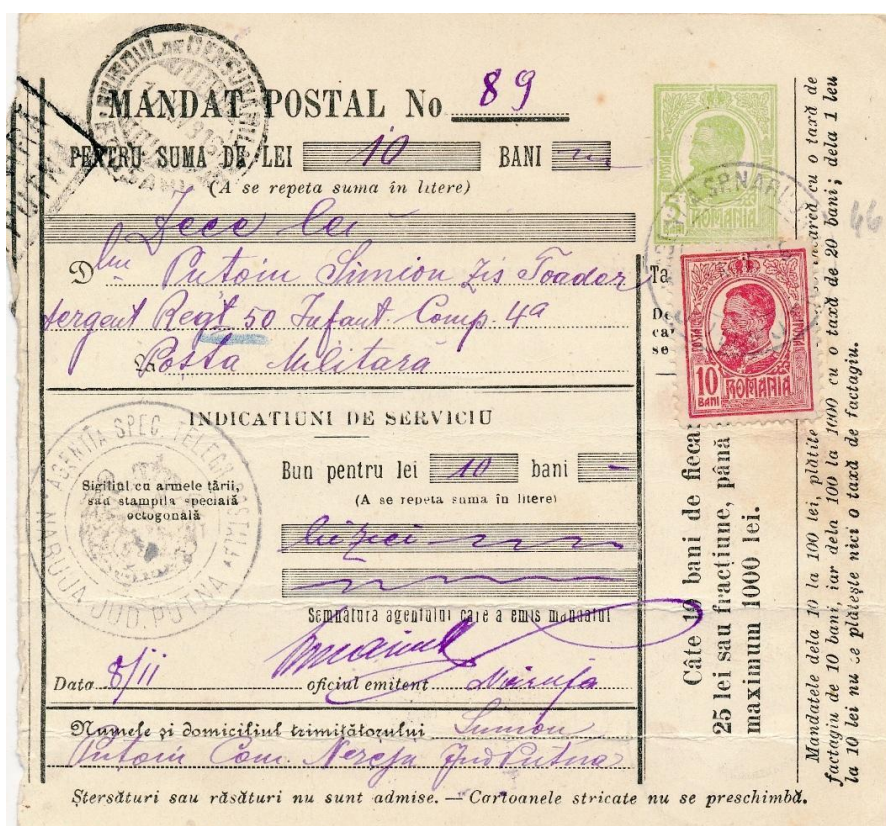 MANDAT POSTAL No 89
PENTRU SUMA DE LEI 10 BANI
(A se repeta suma în litere)
Zece lei
Dlui Putoiu Simion zis Toader
sergent Regt 50 Infant. Comp. 4a
Posta Militară
INDICATIUNI DE SERVICIU
Sigiliul cu armele țării,
sau stampila specială
octogonală
AGENTIA SPEC. TELEGR. POSTALA
JUD. PUTNA
Bun pentru lei 10 bani -
(A se repeta suma in litere)
lei zeci
Semnatura agentului care a emis mandatul
Data 8/II oficiul emitent
Numele și domiciliul trimițătorului Simion
Putoiu Com. Nereju Jud Putna
Ștersături sau răsături nu sunt admise. — Cartoanele stricate nu se preschimbă.
POSTA
ROMANIA
Ta
De
ca
se
POSTA
10
BANI
ROMANIA
Câte 10 bani de fiecar
25 lei sau fracțiune, până
maximum 1000 lei.
Mandatele dela 10 la 100 lei, plătite cu o taxă de
factagiu de 10 bani, iar dela 100 la 1000 cu o taxă de 20 bani; dela 1 leu
la 10 lei nu se plătește nici o taxă de factagiu.
46